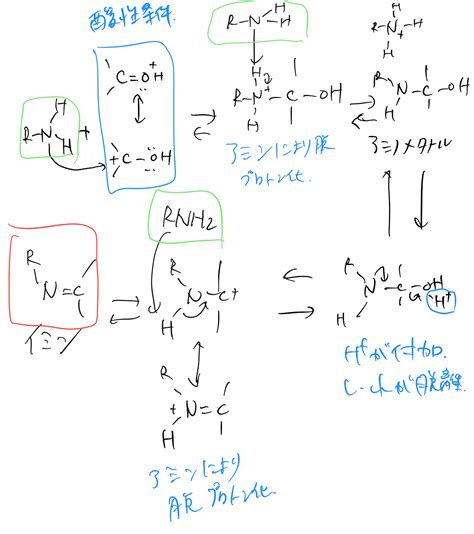 酸性条件
R-N-H
H
H
R-N
H
H
+
C=OH
+
+C-OH
H
R-N+-C-OH
H
アミンにより脱
プロトン化
R-N-H
+
R
N-C-OH
H
アミノメタトル
R
N-C-OH
H
H+
H+が付加
RNH2
R
N-C+
H
R
+N=C
H
アミンにより
脱プロトン化
R
N=C
イミン